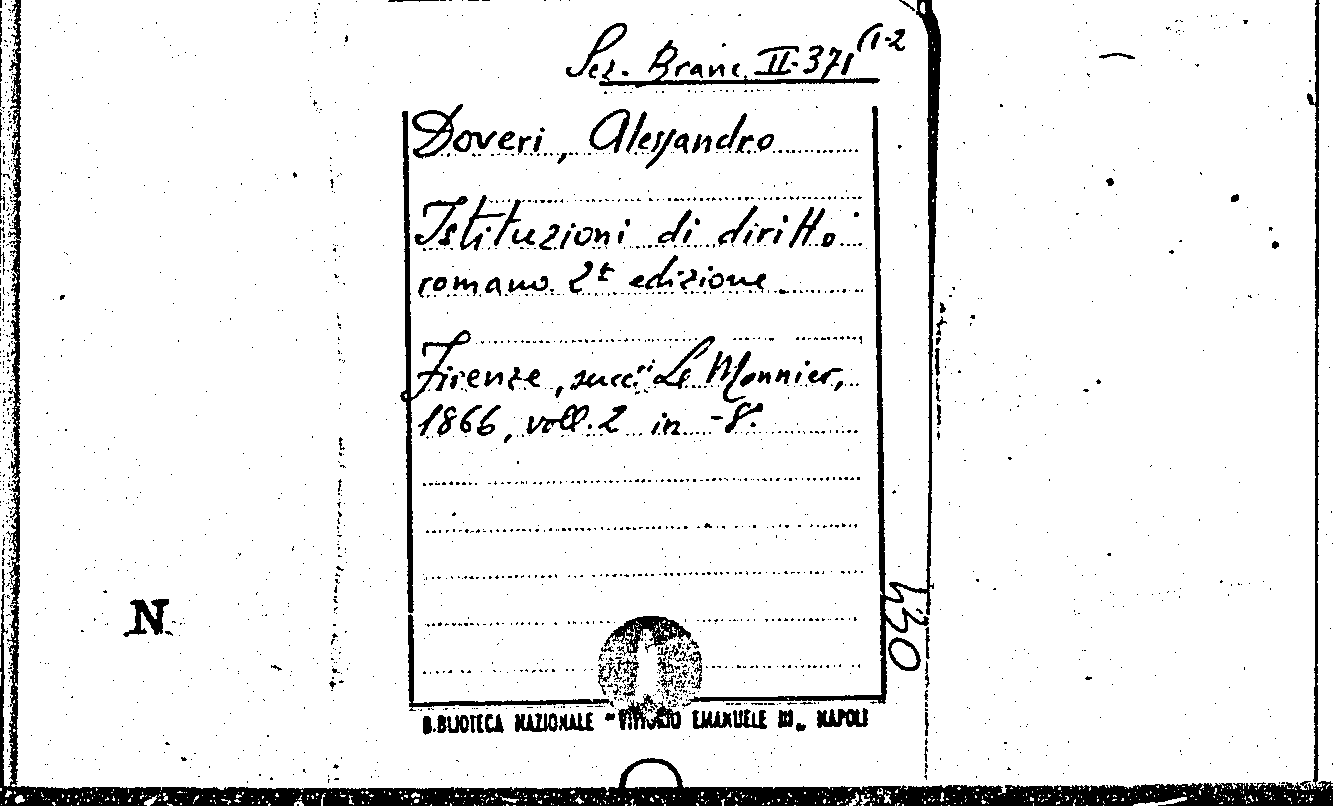 Sez. Branc. II-371 (1-2
Doveri, Alessandro
Istituzioni di diritto
romano. 2ª edizione
Firenze, succ.ri Le Monnier,
1866, voll. 2 in -8º.
N
BIBLIOTECA NAZIONALE "VITTORIO EMANUELE III„ NAPOLI